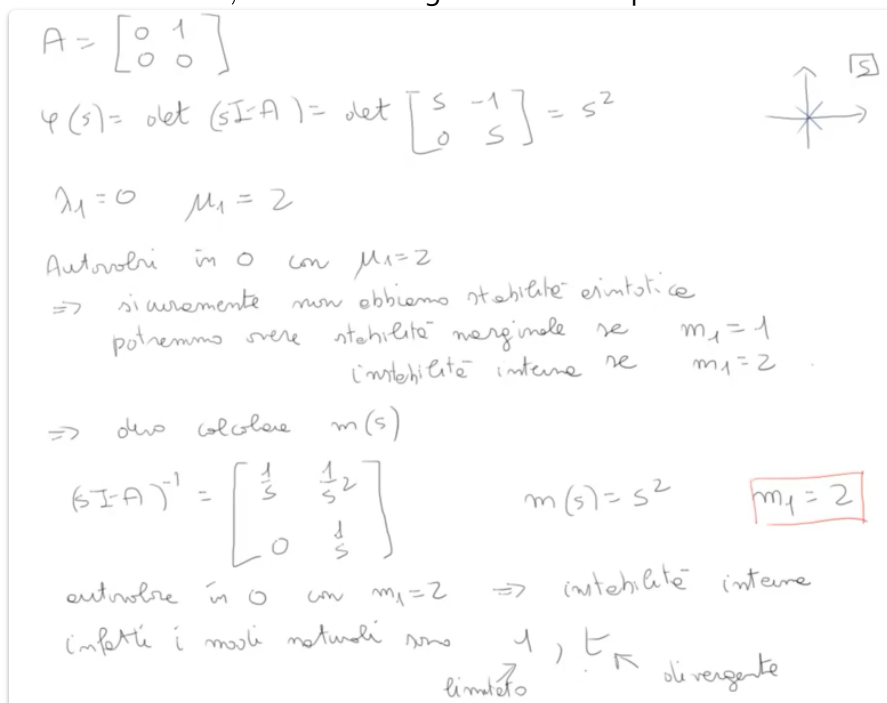 A = [0 1 0 0]
φ(s) = det (sI-A) = det [s -1 0 s] = s²
[s]
λ1 = 0 μ1 = 2
Autovalori in 0 con μ1=2
=> sicuramente non abbiamo stabilità asintotica
potremmo avere stabilità marginale se m1 = 1
instabilità interna se m1 = 2
=> devo calcolare m(s)
(sI-A)⁻¹ = [1/s 1/s² 0 1/s] m(s) = s² m1 = 2
autovalore in 0 con m1=2 => instabilità interna
infatti i modi naturali sono 1, t
limitato divergente